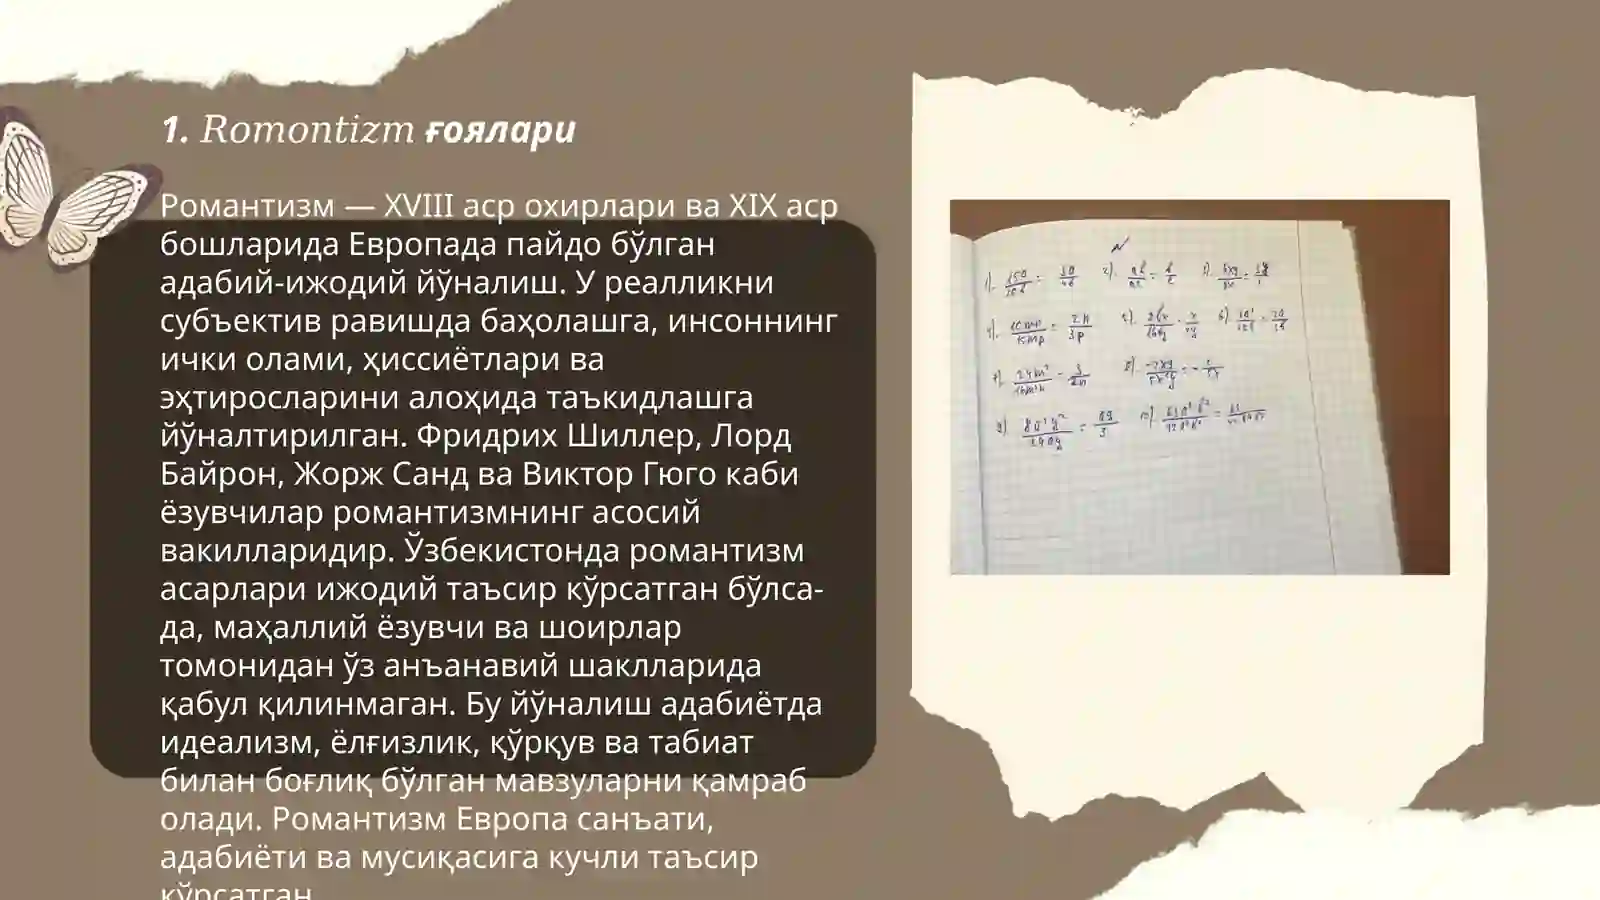 1. Romontizm ғоялари
Романтизм — XVIII аср охирлари ва XIX аср
бошларида Европада пайдо бўлган
адабий-ижодий йўналиш. У реалликни
субъектив равишда баҳолашга, инсоннинг
ички олами, ҳиссиётлари ва
эҳтиросларини алоҳида таъкидлашга
йўналтирилган. Фридрих Шиллер, Лорд
Байрон, Жорж Санд ва Виктор Гюго каби
ёзувчилар романтизмнинг асосий
вакилларидир. Ўзбекистонда романтизм
асарлари ижодий таъсир кўрсатган бўлса-
да, маҳаллий ёзувчи ва шоирлар
томонидан ўз анъанавий шаклларида
қабул қилинмаган. Бу йўналиш адабиётда
идеализм, ёлғизлик, қўрқув ва табиат
билан боғлиқ бўлган мавзуларни қамраб
олади. Романтизм Европа санъати,
адабиёти ва мусиқасига кучли таъсир
кўрсатган